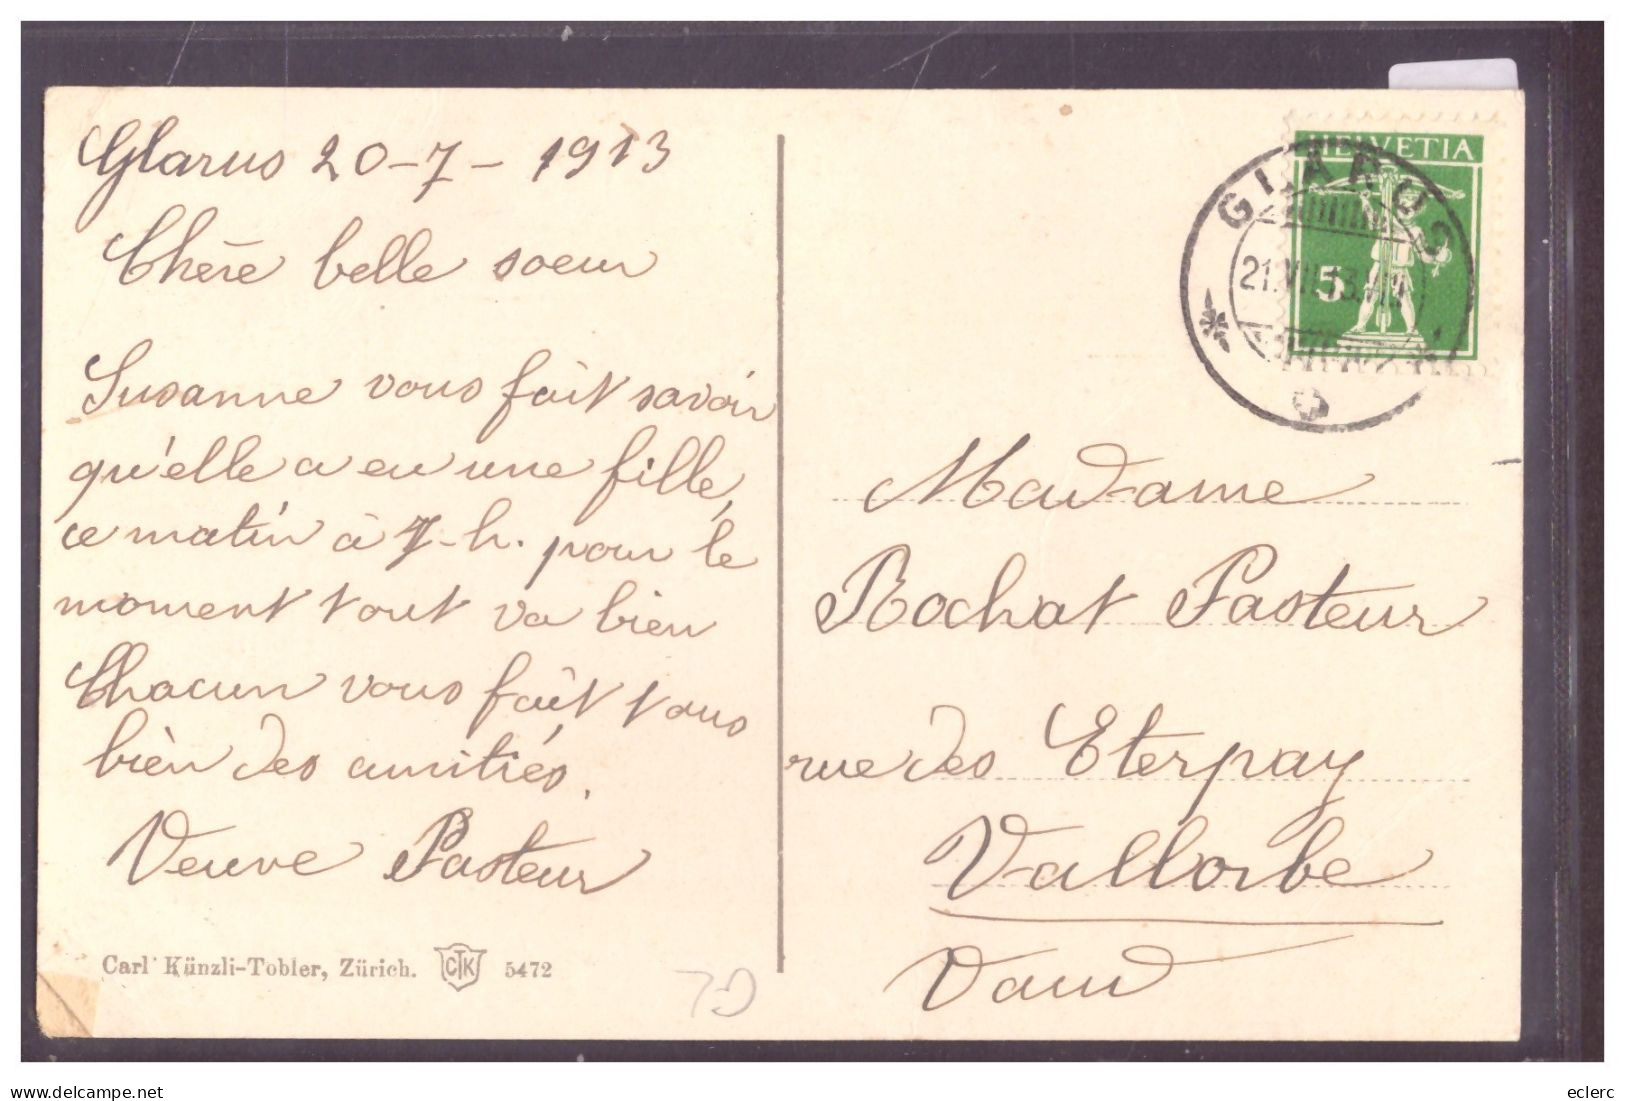 Glarus 20-7-1913
Chère belle soeur
Susanne vous fait savoir
qu'elle a eu une fille,
ce matin à 7 h. pour le
moment tout va bien
Chacun vous fait tous
bien des amitiés.
Veuve Pasteur
Carl Künzli-Tobler, Zürich. CTK 5472
HELVETIA
5
GLARUS
21.VII.13.
Madame
Rochat Pasteur
rue des Eterpay
Vallorbe
Vaud
eclerc
www.delcampe.net